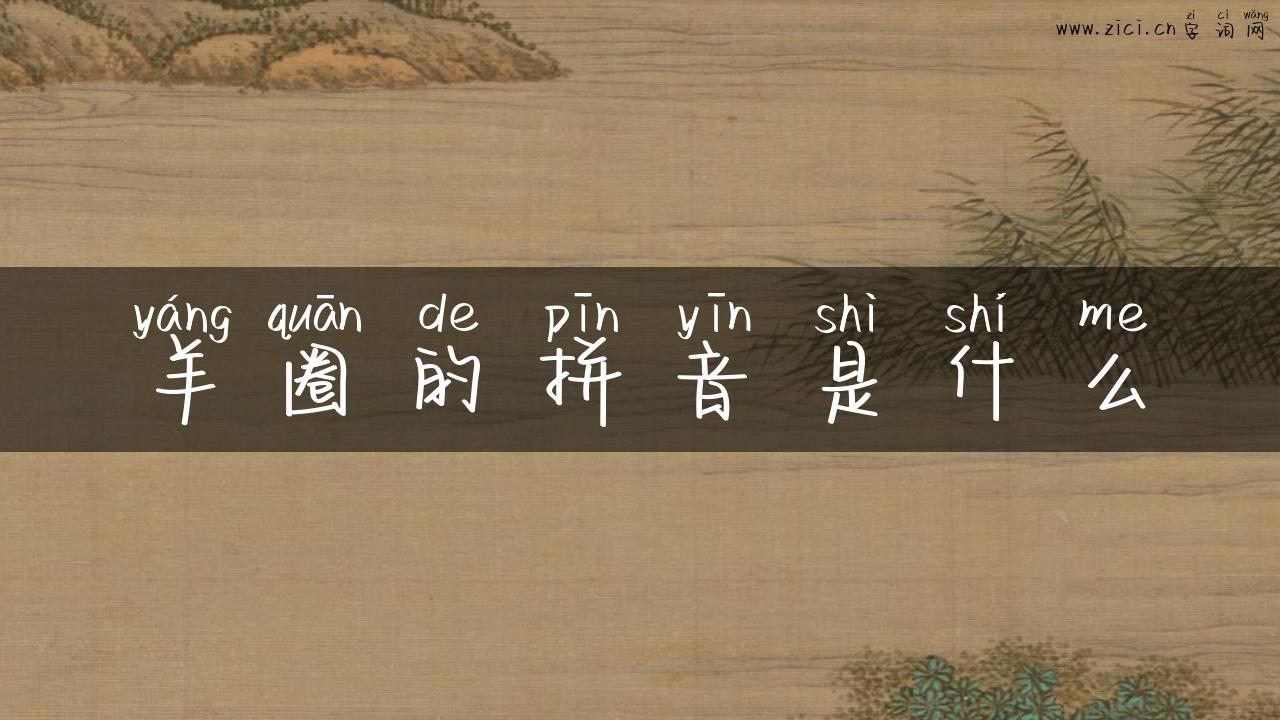 zì cí wǎng
www.zici.cn 字词网
yáng quān de pīn yīn shì shí me
羊圈的拼音是什么